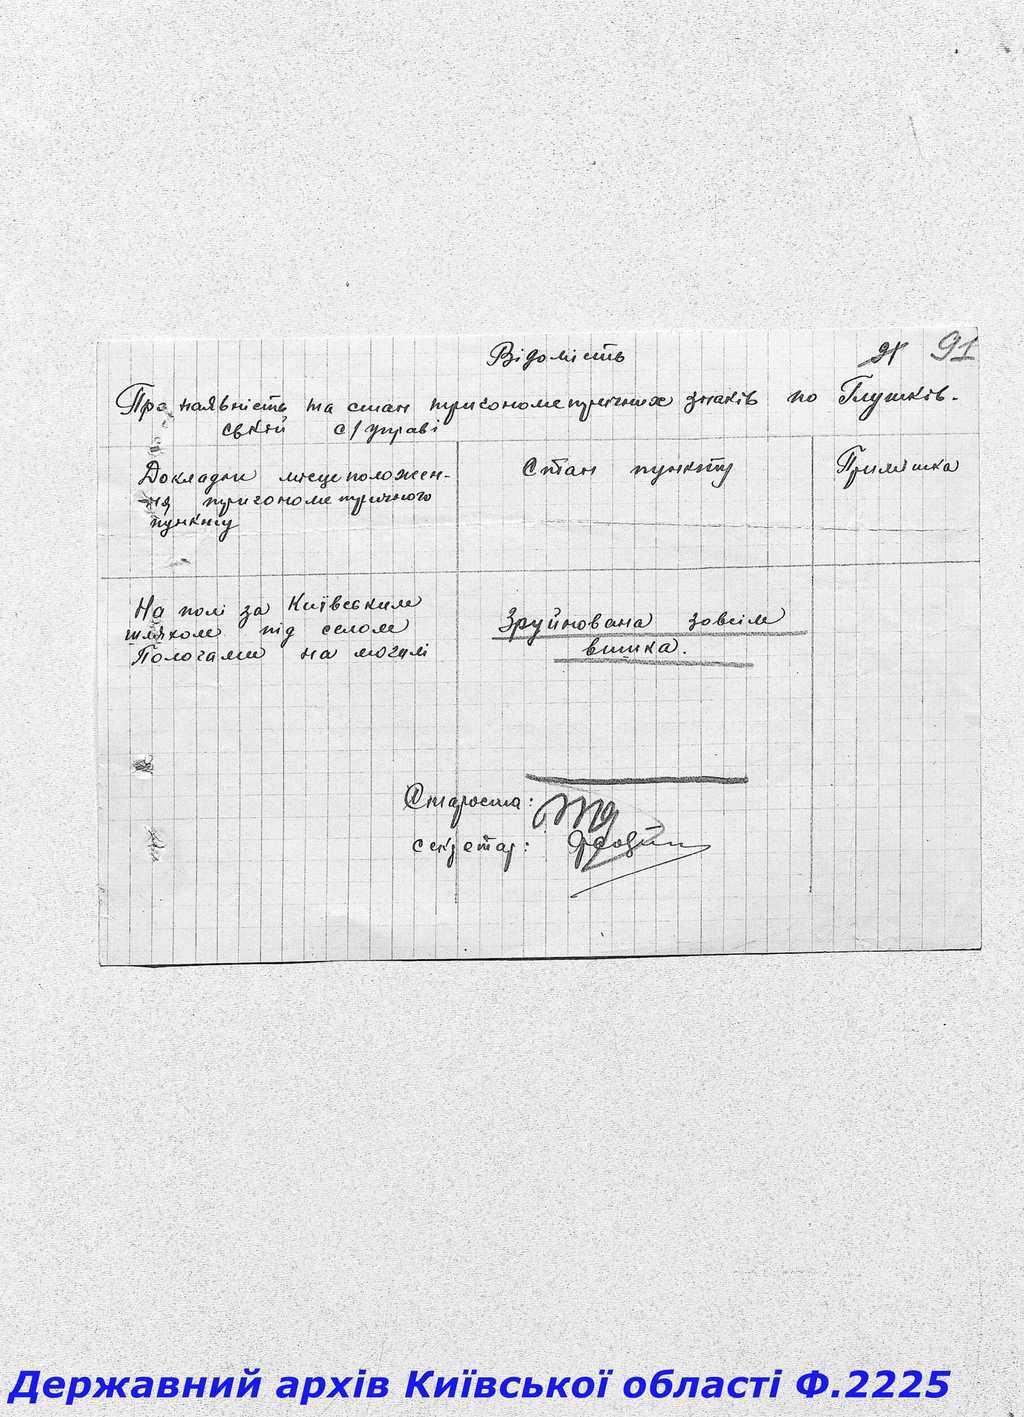 Відомість
91
Про наявність та стан тригонометричних знаків по Глушків-
ській с/управі
Докладне місцеположен-
ня тригонометричного
пункту
Стан пункту
Примітка
На полі за Київським
шляхом під селом
Пологами на могилі
Зруйнована зовсім
вишка.
Староста:
секретар:
Державний архів Київської області Ф.2225